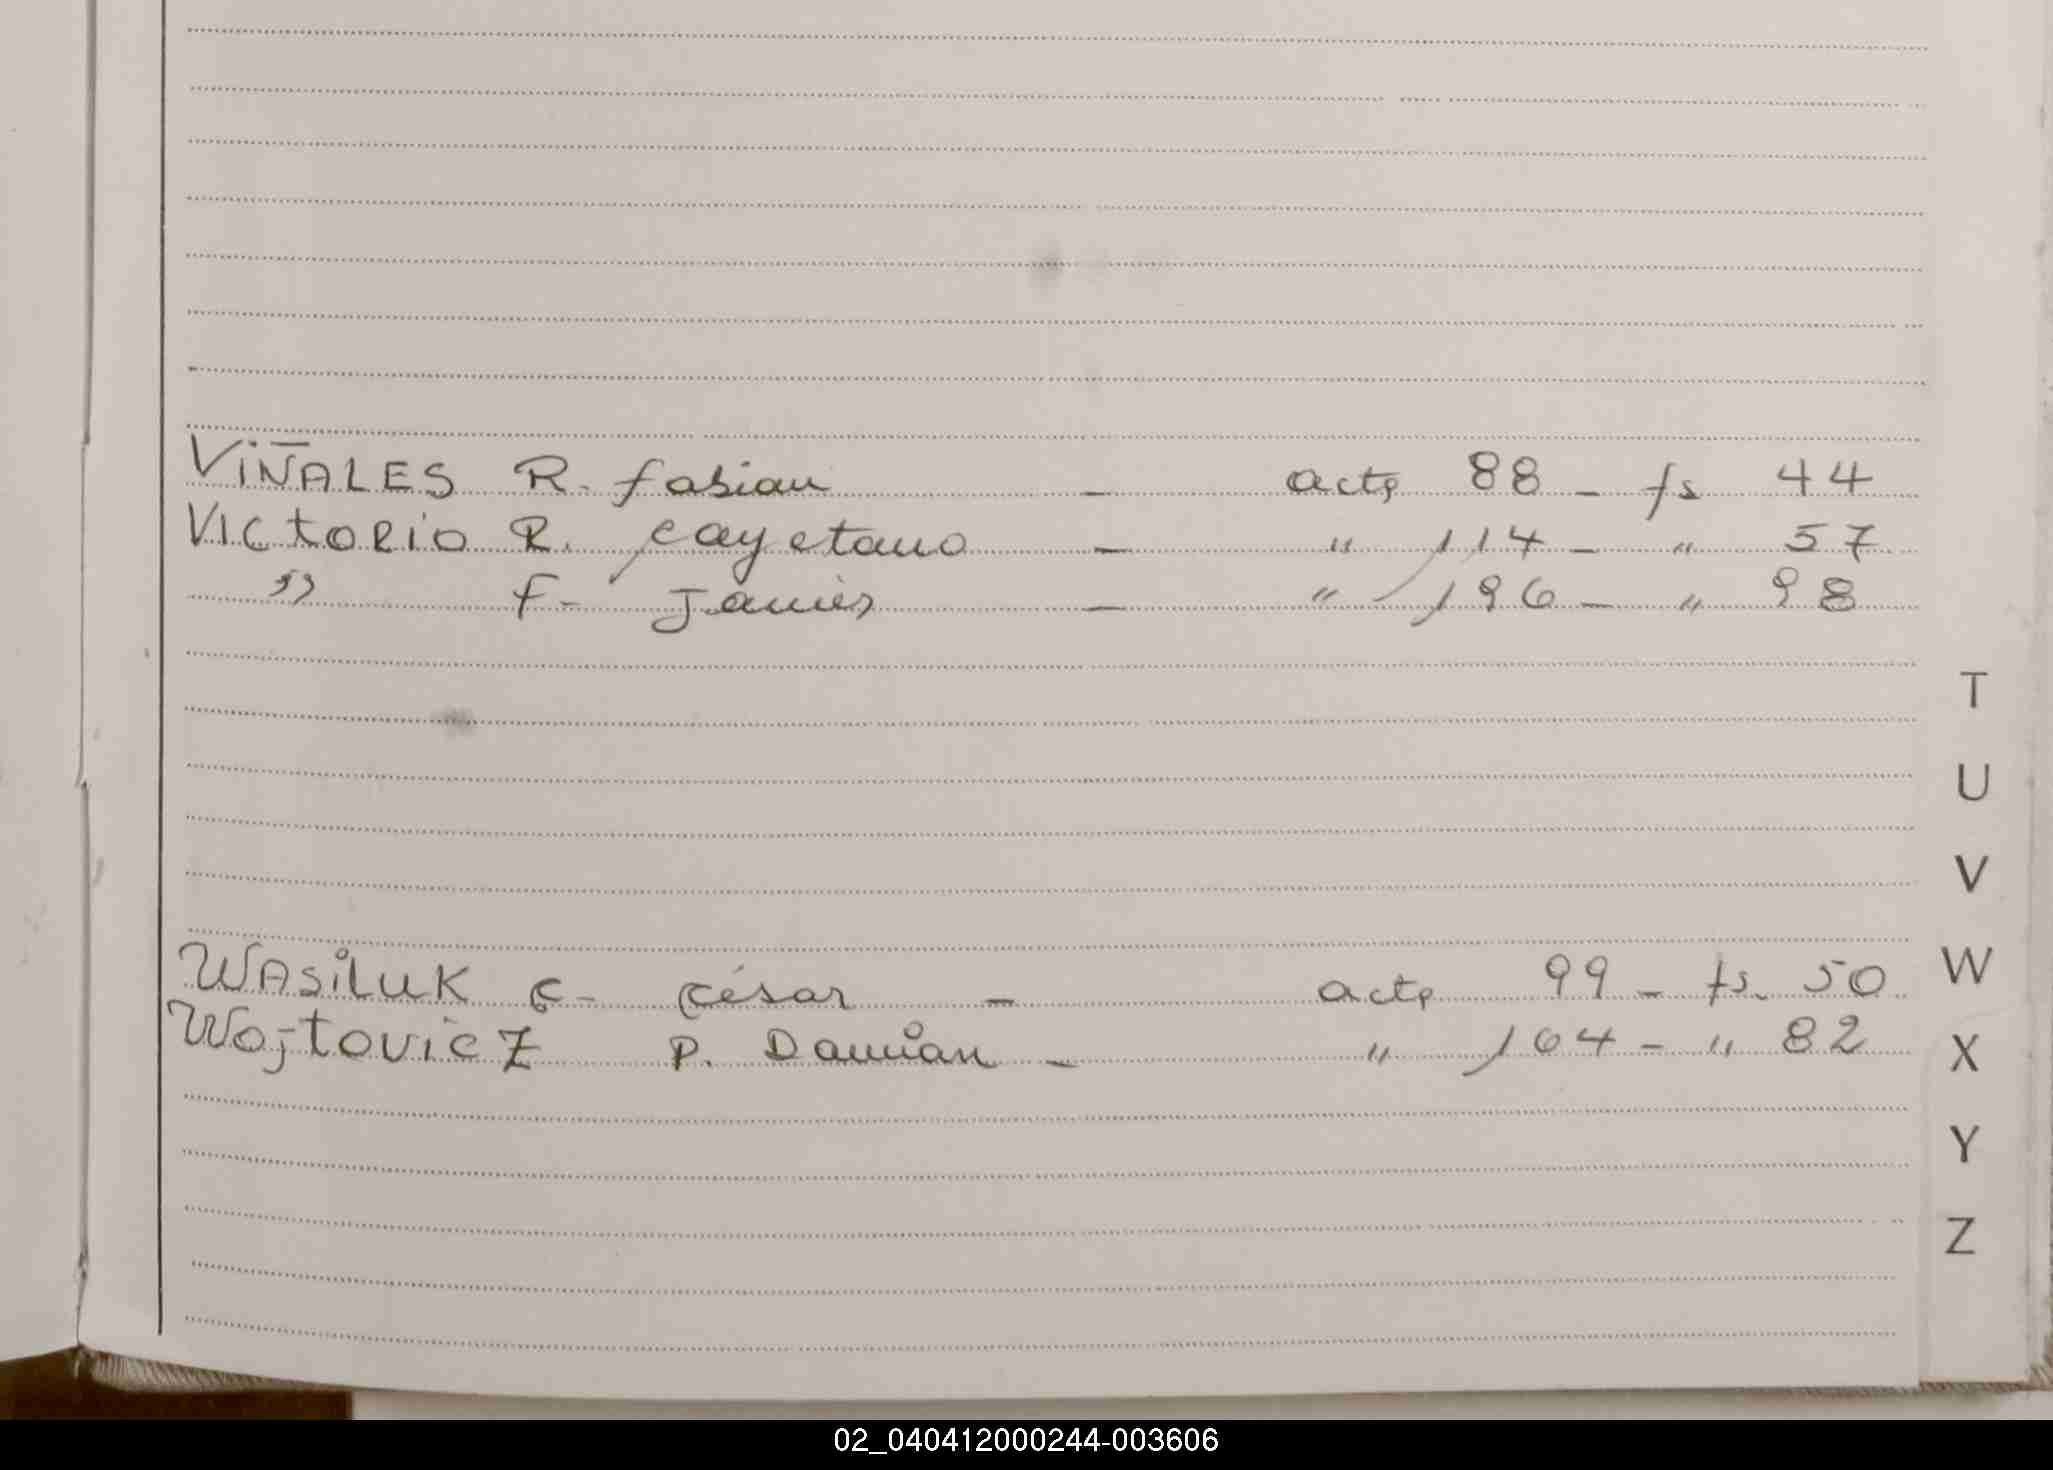 VIÑALES R. Fabian - acta 88 - fs 44
VICTORIO R. Cayetano - " 114 - " 57
" F- Javier - " 196 - " 98
T
U
V
WASILUK C- César - acta 99 - fs. 50
W
WOJTOVICZ P. Damián - " 164 - " 82
X
Y
Z
02_040412000244-003606